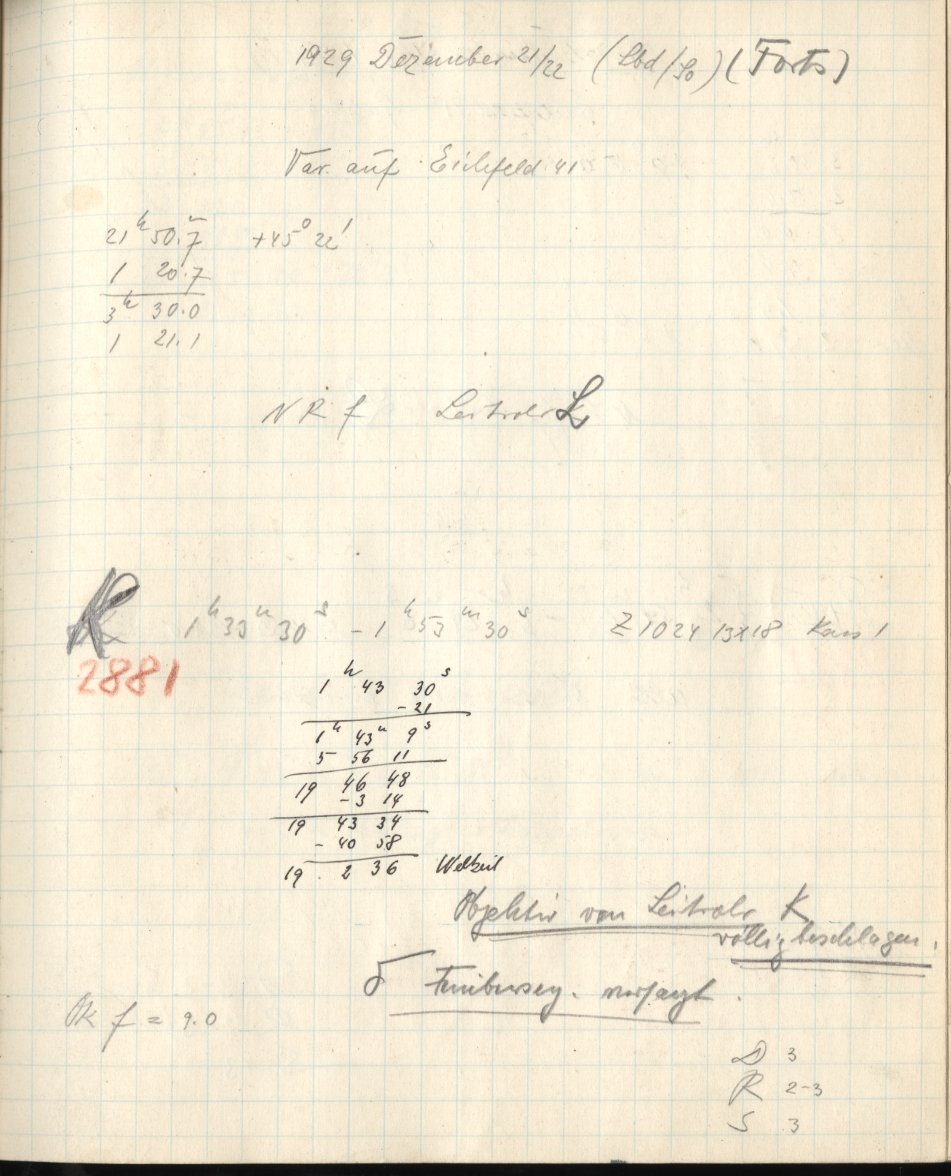 1929 Dezember 21/22 (Sbd/So) (Forts)
Var. auf Eichfeld 41
21ʰ 50.7ᵐ +45° 22'
1 20.7
3ʰ 30.0
1 21.1
N R f Leitrohr L
K 1ʰ 33ᵐ 30ˢ - 1ʰ 53ᵐ 30ˢ Z 1024 13x18 Kass 1
2881
1ʰ 43 30ˢ
-21
1ʰ 43ᵐ 9ˢ
5 56 11
19 46 48
-3 14
19 43 34
- 40 58
19 2 36 Weltzeit
Objektiv von Leitrohr K
völlig beschlagen.
δ Feinbeweg. versagt.
Ok f = 9.0
D 3
R 2-3
S 3